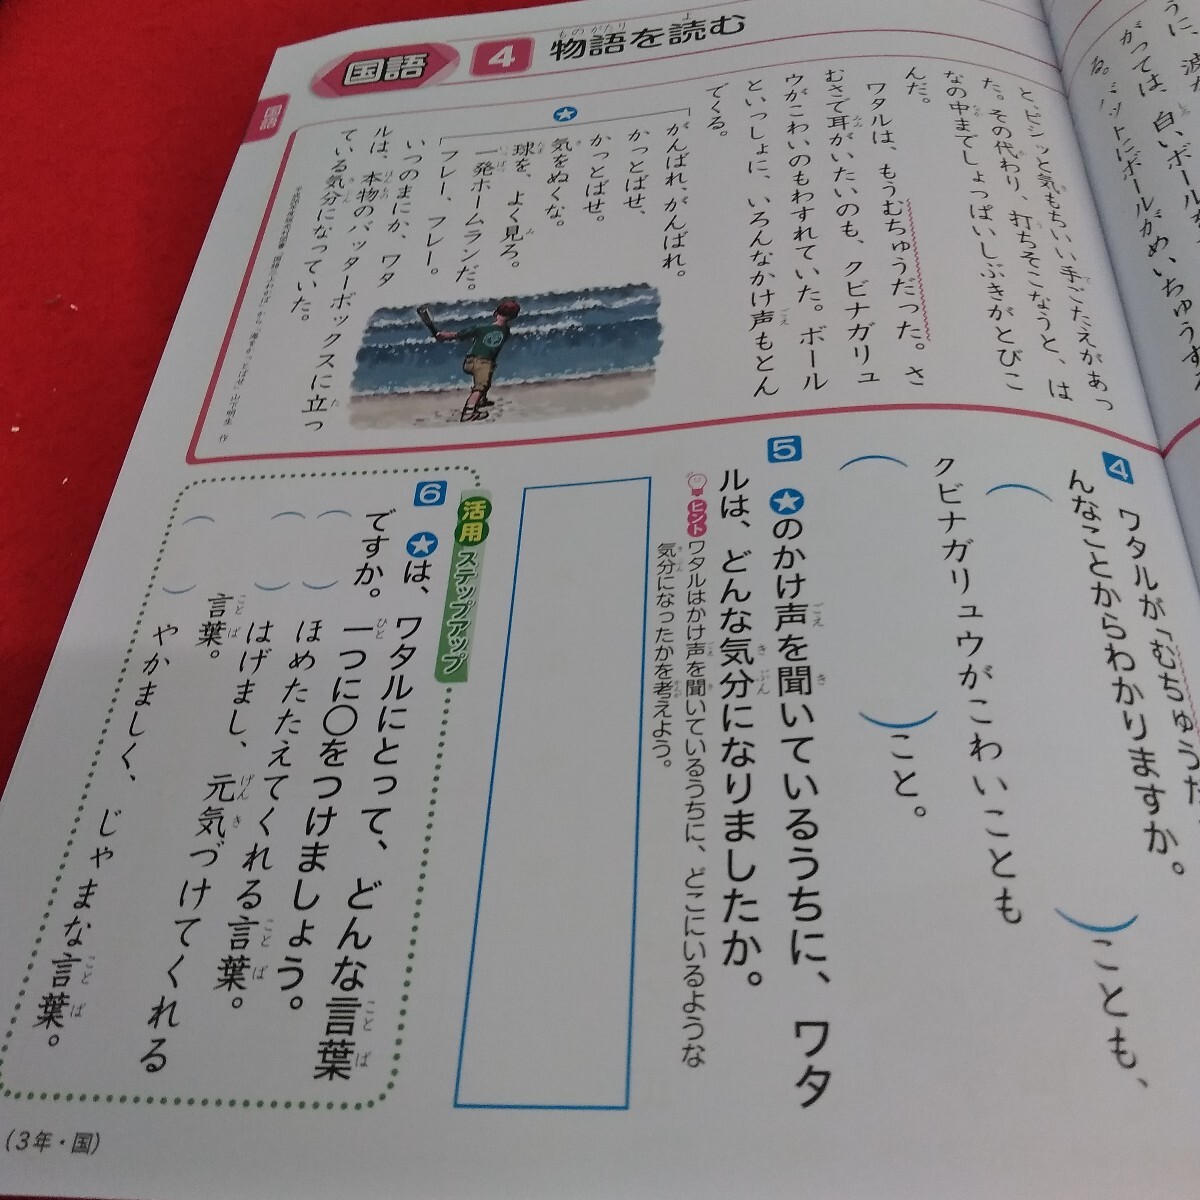 うに、波が
がっては、白いボール
る。バットにボールがめいちゅうす
国語
4
物語を読む
ものがたり
よ
国語
と、ピシッと気もちいい手ごたえがあっ
た。その代わり、打ちそこなうと、は
なの中までしょっぱいしぶきがとびこ
んだ。
ワタルは、もうむちゅうだった。さ
むさで耳がいたいのも、クビナガリュ
ウがこわいのもわすれていた。ボール
といっしょに、いろんなかけ声もとん
でくる。
「がんばれ、がんばれ。
かっとばせ、
かっとばせ。
気をぬくな。
球を、よく見ろ。
一発ホームランだ。
「フレー、フレー。
いつのまにか、ワタ
ルは、本物のバッターボックスに立っ
ている気分になっていた。
★
4
ワタルが「むちゅうだ
んなことからわかりますか。
（　）ことも、
クビナガリュウがこわいことも
（　）こと。
5
★のかけ声を聞いているうちに、ワタ
ルは、どんな気分になりましたか。
ヒント
ワタルはかけ声を聞いているうちに、どこにいるような
気分になったかを考えよう。
活用 ステップアップ
6
★は、ワタルにとって、どんな言葉
ですか。一つに○をつけましょう。
（　）ほめたたえてくれる言葉。
（　）はげまし、元気づけてくれる
言葉。
（　）やかましく、じゃまな言葉。
（3年・国）